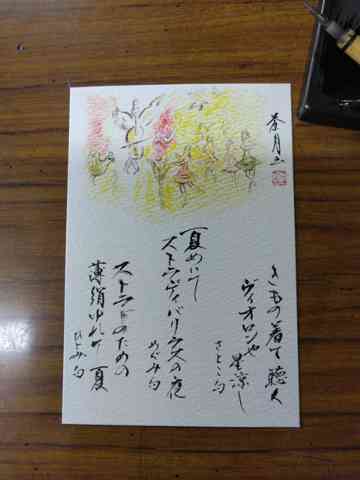 きもの着て聴く
ヴィオロンや
星涼し
さとこ句
夏めいて
ストラディバリウスの夜
めぐみ句
ストラドのための
薄絹ゆれて夏
ひとみ句